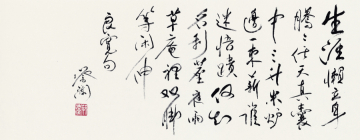 生涯懶立身
騰々任天真囊
中三升米炉
邊一束薪誰
迷悟蹟何知
名利塵夜雨
草庵裡双脚
等闲伸
良寛句